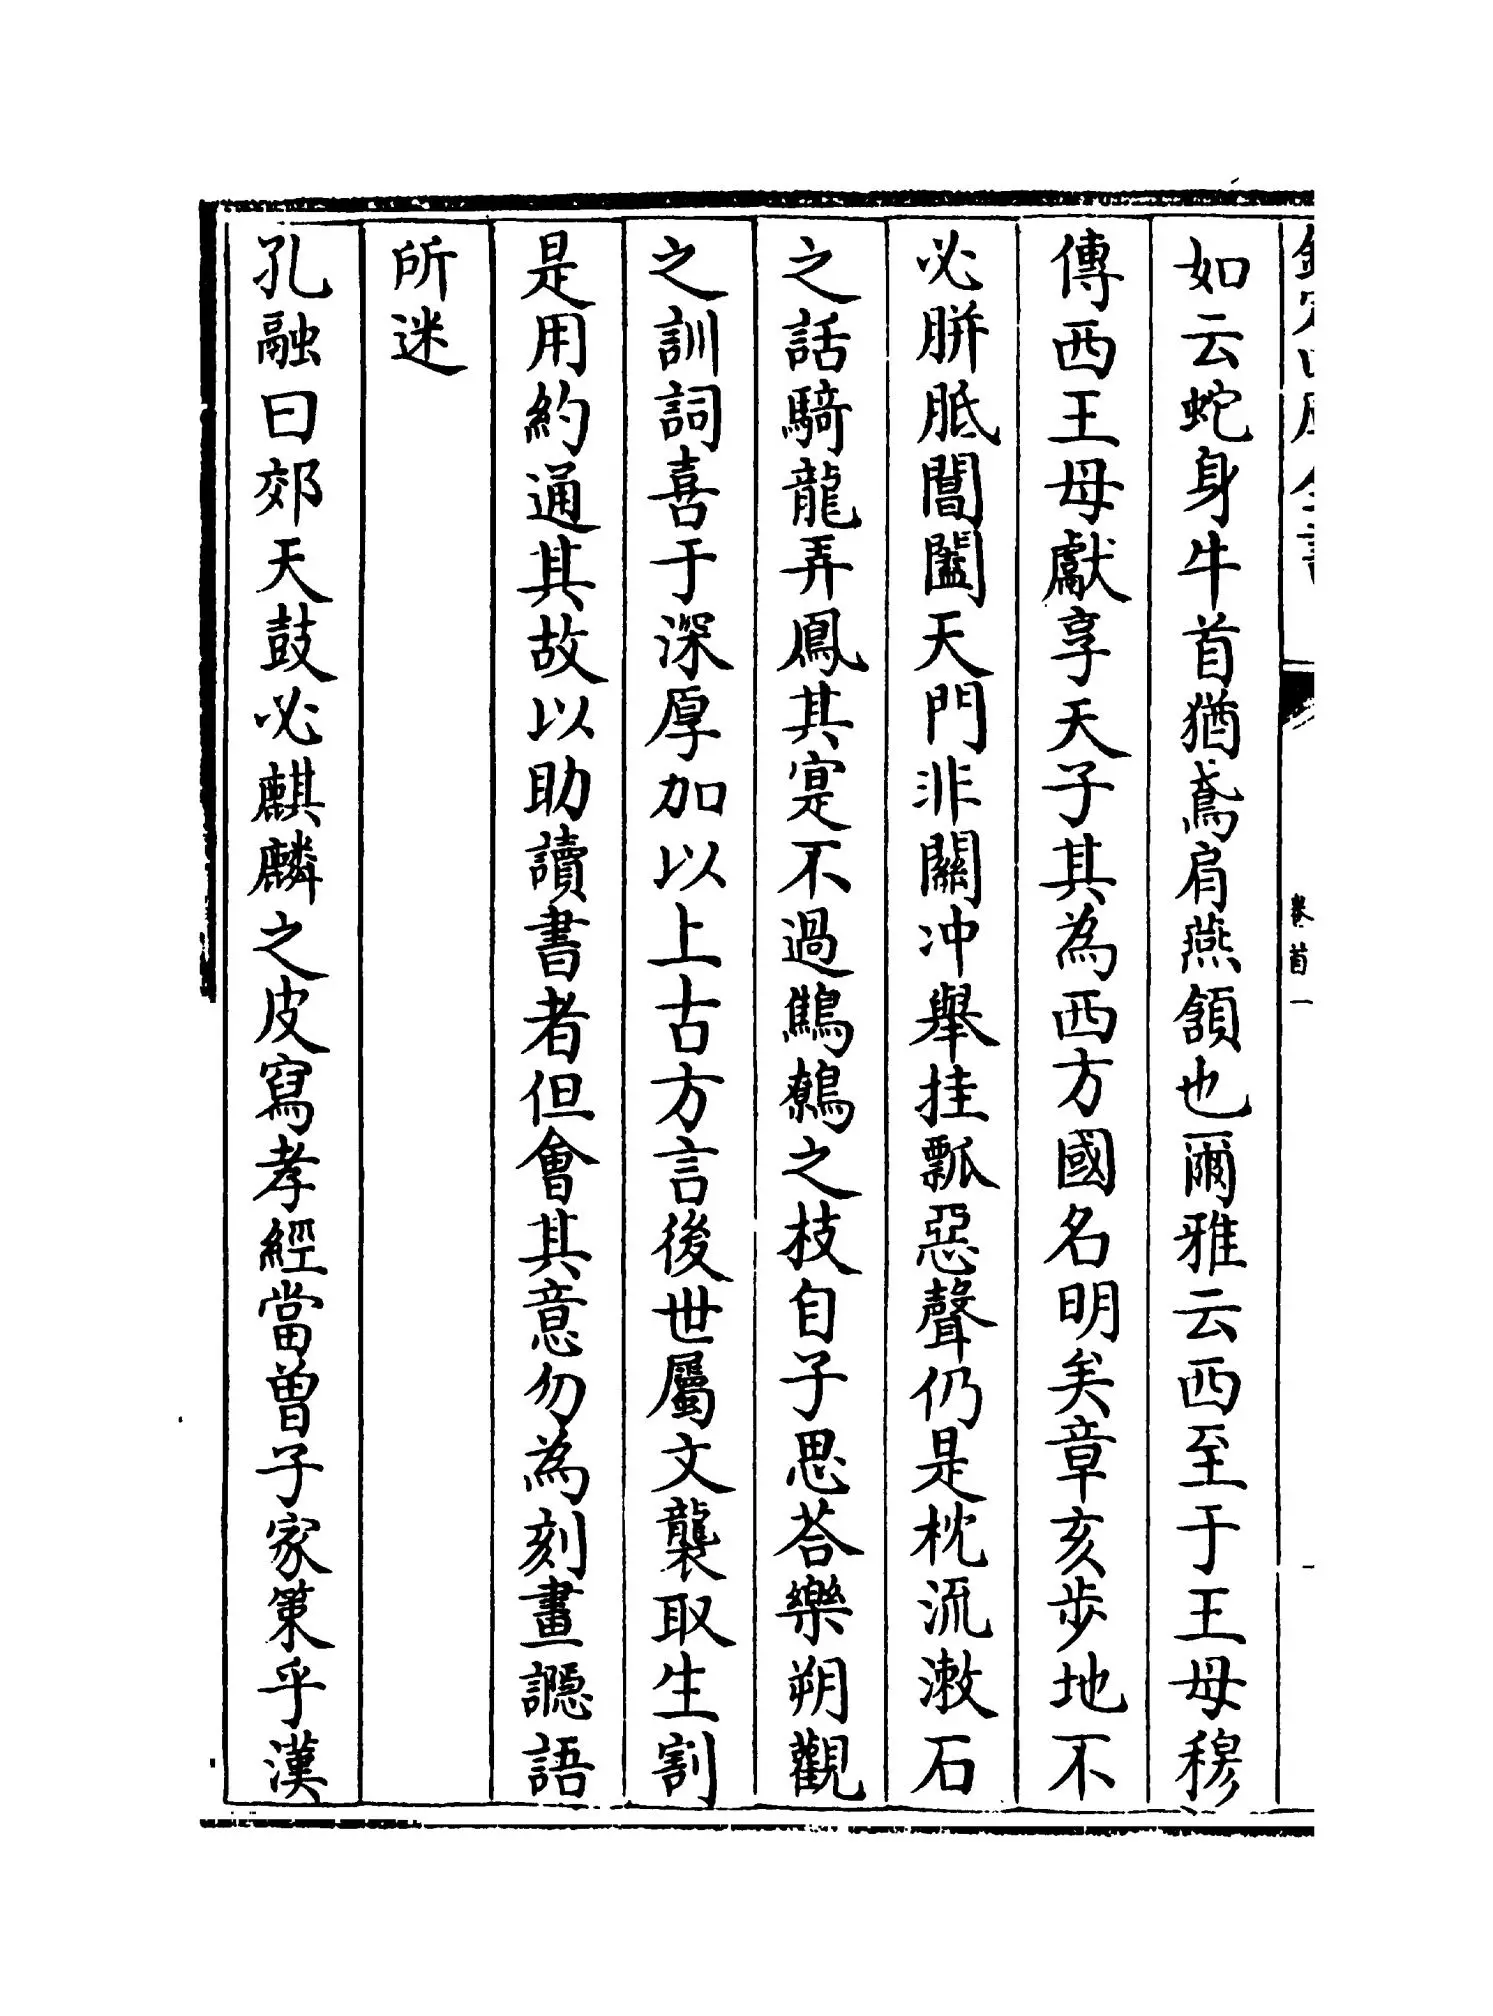 欽定四庫全書
卷首一
如云蛇身牛首猶鳶肩燕頷也爾雅云西至于王母穆
傳西王母獻享天子其為西方國名明矣章亥步地不
必胼胝閶闔天門非關冲舉挂瓢惡聲仍是枕流漱石
之話騎龍弄鳳其寔不過鷦鷯之枝自子思荅樂朔觀
之訓詞喜于深厚加以上古方言後世屬文襲取生割
是用約通其故以助讀書者但會其意勿為刻畫讔語
所迷
孔融曰郊天鼓必麒麟之皮寫孝經當曾子家策乎漢